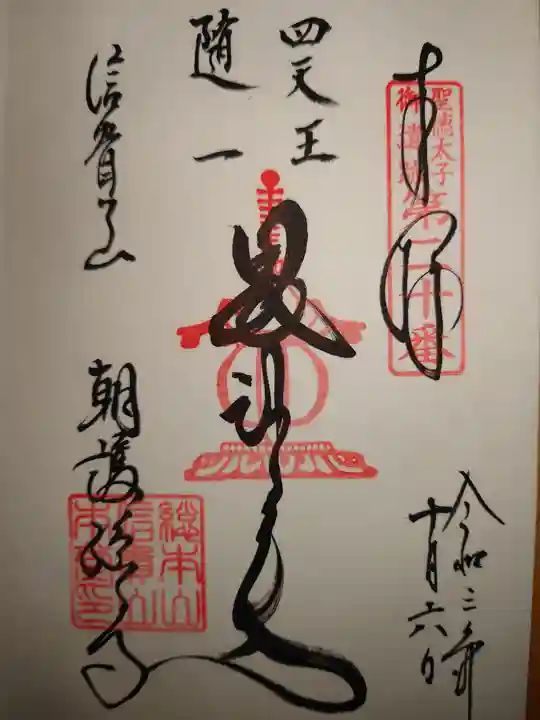 奉拝
聖徳太子
御遺跡
第二十番
令和三年
十月六日
四天王
随一
毘沙門天
信貴山
朝護孫子寺
総本山
信貴山
本堂印